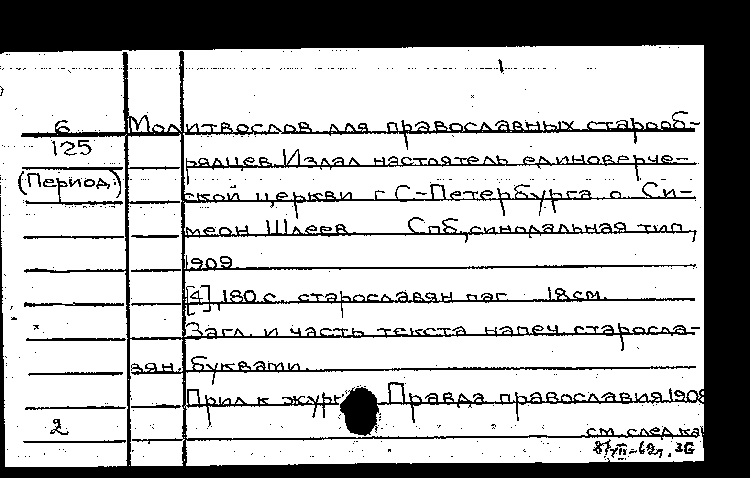 6
125
(Период.)
Молитвослов для православных старооб-
рядцев. Издал настоятель единоверче-
ской церкви г. С-Петербурга о. Си-
меон Шлеев. Спб, синодальная тип.,
1909
[4], 180 с. старославян паг. 18 см.
Загл. и часть текста напеч старосла-
вян. буквами.
Прил к журн Правда православия 1908
2
см. след ка
8/VII-62г. ЗБ